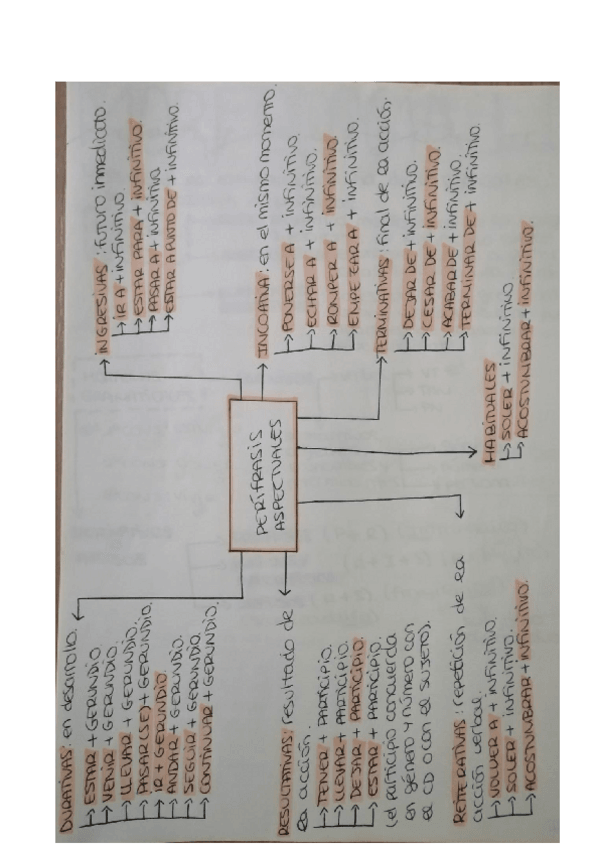 PERÍFRASIS
ASPECTUALES
DURATIVAS: en desarrollo.
ESTAR + GERUNDIO.
VENIR + GERUNDIO.
LLEVAR + GERUNDIO.
PASAR(SE) + GERUNDIO.
IR + GERUNDIO.
ANDAR + GERUNDIO.
SEGUIR + GERUNDIO.
CONTINUAR + GERUNDIO.
RESULTATIVAS: resultado de
la acción.
TENER + PARTICIPIO.
LLEVAR + PARTICIPIO.
DEJAR + PARTICIPIO.
ESTAR + PARTICIPIO.
(el participio concuerda
en género y número con
el CD o con el sujeto).
REITERATIVAS: repetición de la
acción verbal.
VOLVER A + INFINITIVO.
SOLER + INFINITIVO.
ACOSTUMBRAR + INFINITIVO.
INGRESIVAS: futuro inmediato.
IR A + INFINITIVO.
ESTAR PARA + INFINITIVO.
PASAR A + INFINITIVO.
ESTAR A PUNTO DE + INFINITIVO.
INCOATIVA: en el mismo momento.
PONERSE A + INFINITIVO.
ECHAR A + INFINITIVO.
ROMPER A + INFINITIVO.
EMPEZAR A + INFINITIVO.
TERMINATIVAS: final de la acción.
DEJAR DE + INFINITIVO.
CESAR DE + INFINITIVO.
ACABAR DE + INFINITIVO.
TERMINAR DE + INFINITIVO.
HABITUALES
SOLER + INFINITIVO.
ACOSTUMBRAR + INFINITIVO.